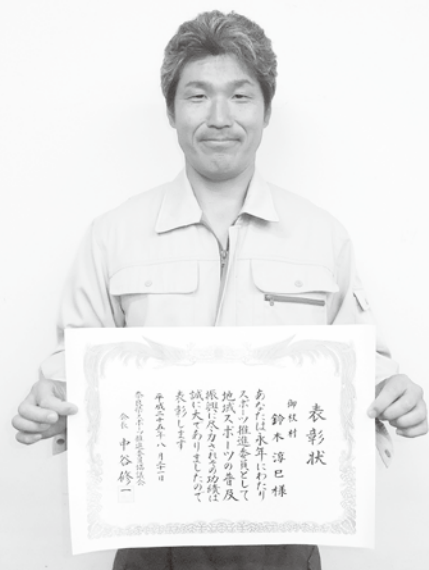 表彰状
御杖村
鈴木淳巳様
あなたは永年にわたり
スポーツ推進委員として
地域スポーツの普及
振興に尽力されその功績は
誠に大でありましたので
表彰します
平成二十五年八月三十一日
奈良県スポーツ推進委員協議会
会長 中谷修一